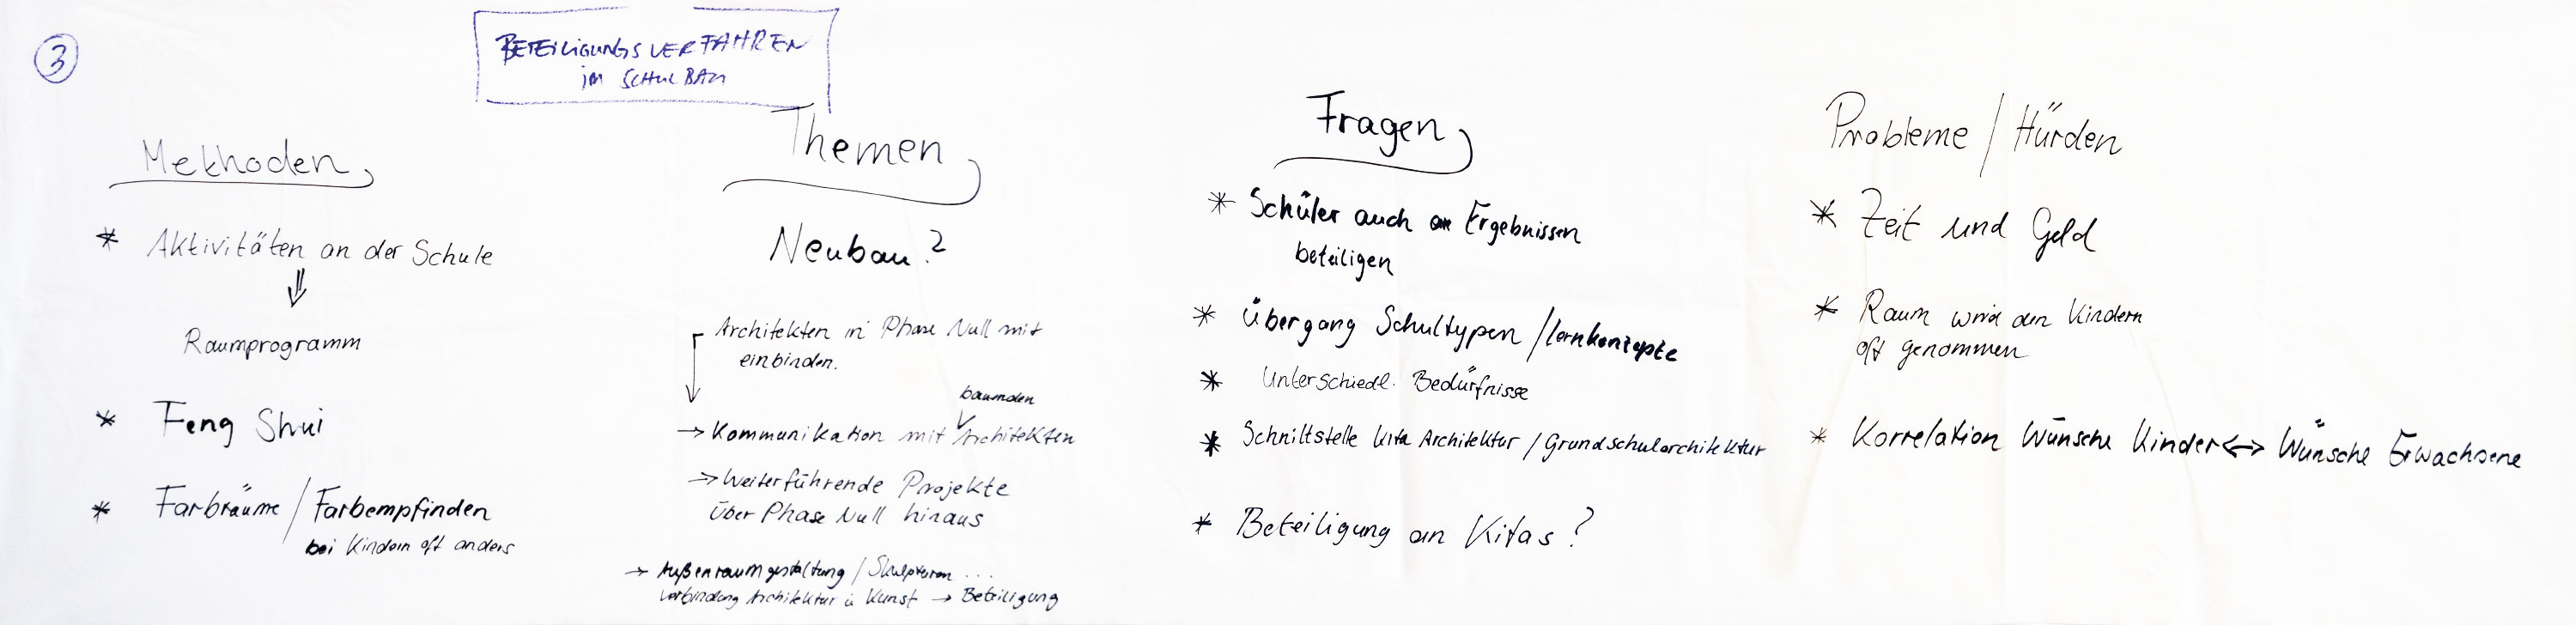 3
BETEILIGUNGSVERFAHREN
im SCHULBAU
Methoden
* Aktivitäten an der Schule
⇓
Raumprogramm
* Feng Shui
* Farbräume / Farbempfinden
bei Kindern oft anders
Themen
Neubau?
Architekten in Phase Null mit
einbinden.
bauenden
→ Kommunikation mit Architekten
→ Weiterführende Projekte
über Phase Null hinaus
→ Außenraumgestaltung / Skulpturen ...
Verbindung Architektur u Kunst → Beteiligung
Fragen
* Schüler auch an Ergebnissen
beteiligen
* Übergang Schultypen / Lernkonzepte
* Unterschiedl. Bedürfnisse
* Schnittstelle Kita Architektur / Grundschularchitektur
* Beteiligung an Kitas?
Probleme / Hürden
* Zeit und Geld
* Raum wird den Kindern
oft genommen
* Korrelation Wünsche Kinder ↔ Wünsche Erwachsene